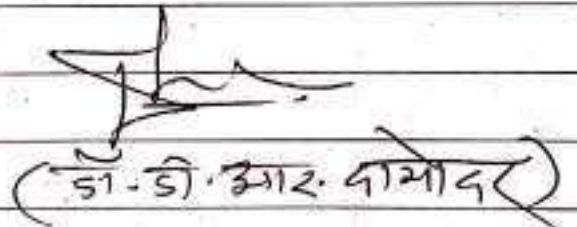 (डॉ. डी. आर. दामोदर)